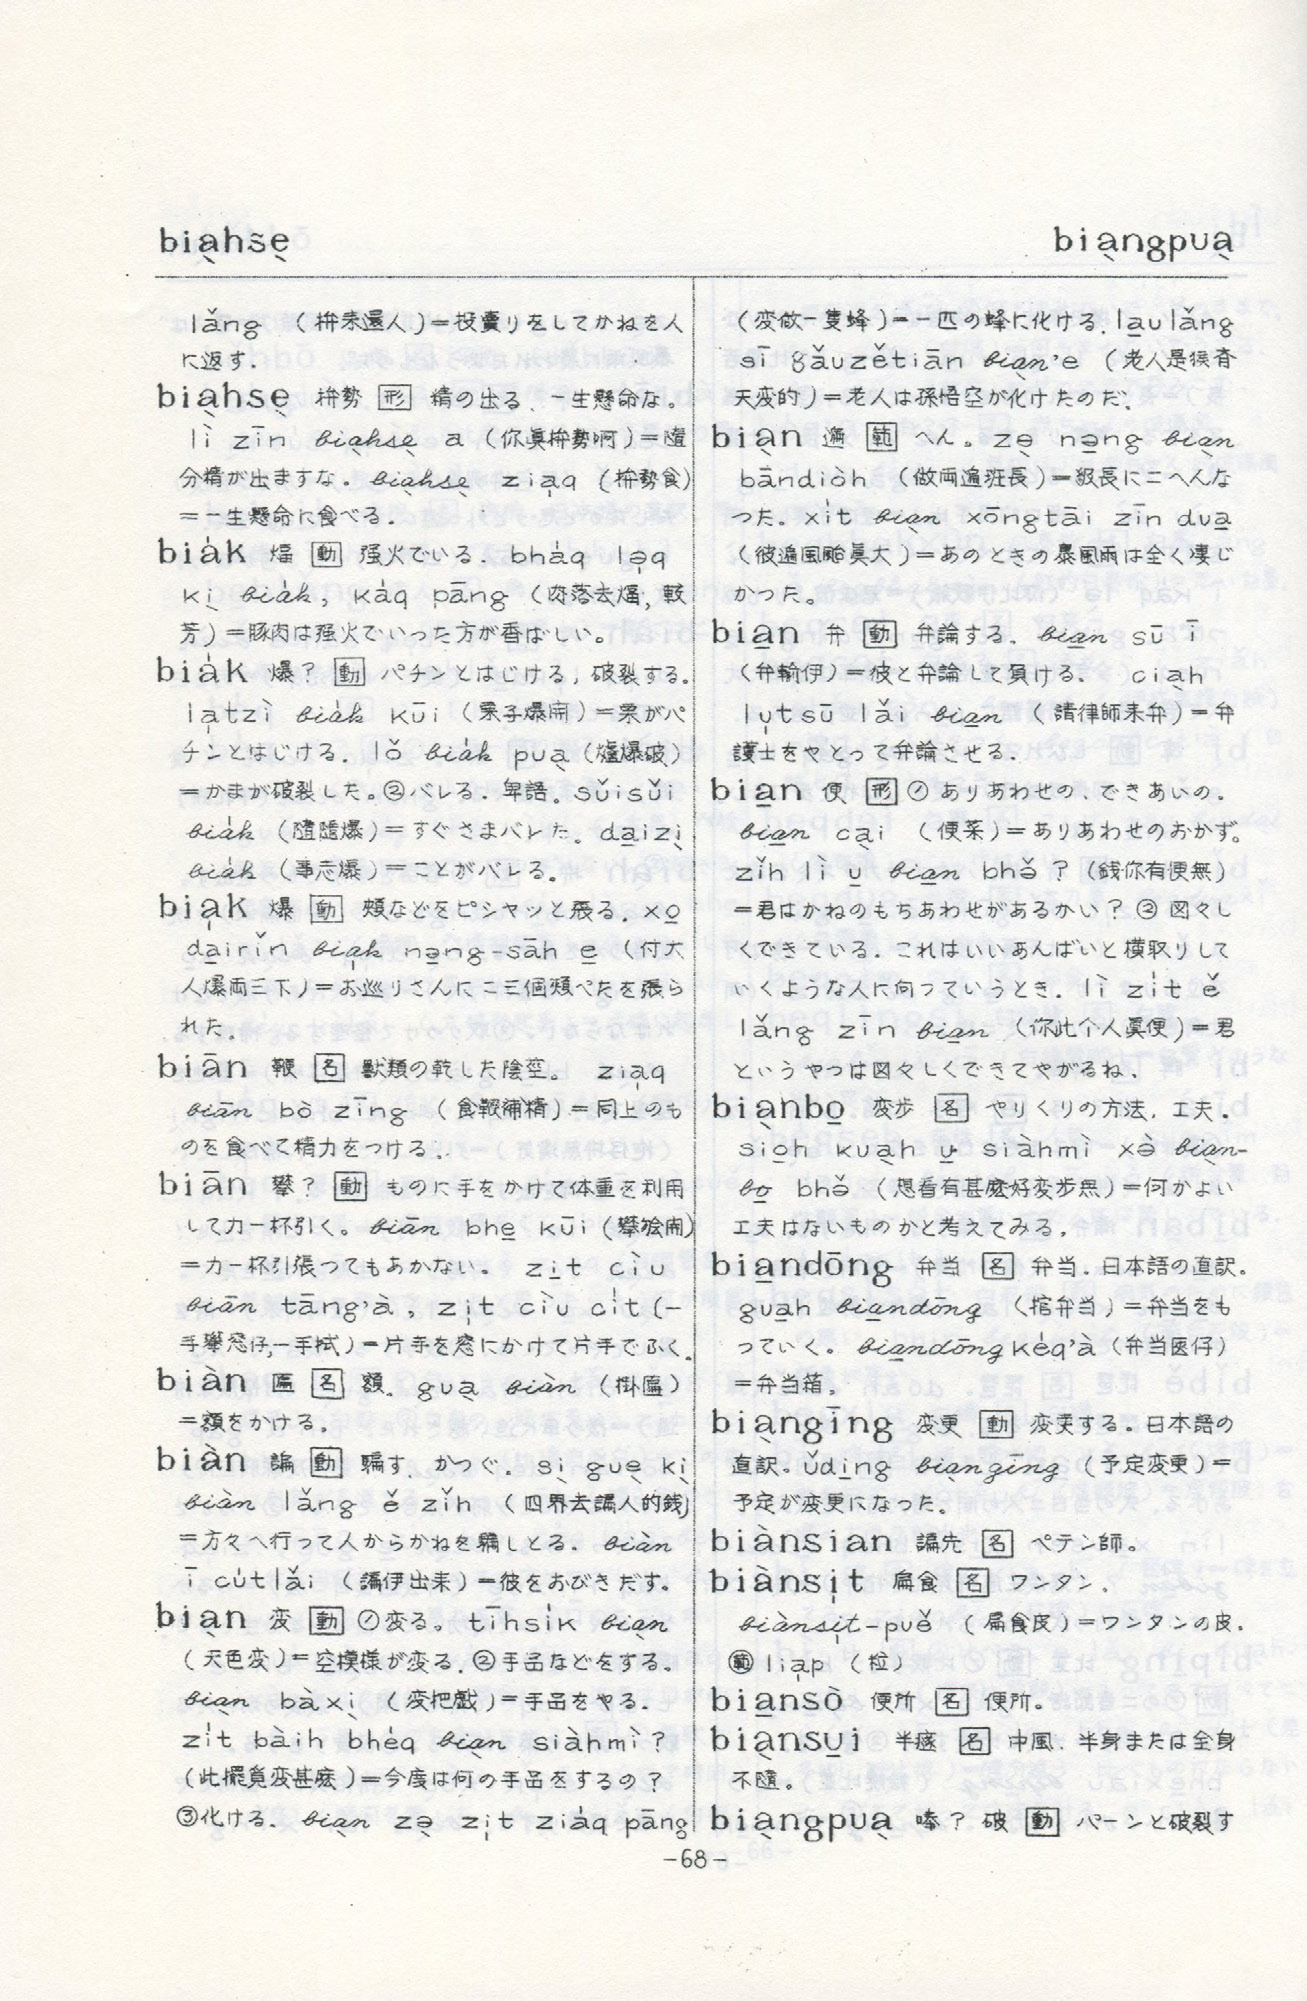 biа̖hsе̖
biа̖ngpuа̖
lǎng （拚来還人）＝投賣りをしてかねを人
に返す．
biа̖hsе̖ 拚勢 形 精の出る．一生懸命な。
lì zīn biа̖hsе̖ a （你真拚勢啊）＝隨
分精が出ますな．biа̖hsе̖ ziа̖q （拚勢食）
＝一生懸命に食べる．
bia̍k 煏 動 强火でいる．bha̍q lə̖q
ki̖ bia̍k, ka̍q pāng （肉落去煏，較
芳）＝豚肉は强火でいった方が香ばしい。
bia̍k 爆？ 動 パチンとはじける；破裂する．
lа̖tzì bia̍k kūi （栗子爆開）＝栗がパ
チンとはじける．lǒ bia̍k puа̖ （爐爆破）
＝かまが破裂した。②バレる．卑語。sǔisǔi
bia̍k （隨隨爆）＝すぐさまバレた．da̱izi̖
bia̍k （事志爆）＝ことがバレる．
biа̖k 爆 動 頰などをピシャッと張る．xo̱
da̱irǐn biа̖k nə̱ng-sāh e̱ （付大
人爆両三下）＝お巡りさんに二三個頰ぺたを張ら
れた．
biān 鞭 名 獸類の乾した陰莖。 ziа̖q
biān bò zīng （食鞭補精）＝同上のも
のを食べて精力をつける．
biān 攀？ 動 ものに手をかけて体重を利用
して力一杯引く。biān bhe̱ kūi （攀𣍐開）
＝力一杯引張ってもあかない。 zi̖t cìu
biān tāng'à, zi̖t cìu ci̍t （一
手攀窓仔，一手拭）＝片手を窓にかけて片手でふく．
biàn 匾 名 額．guа̖ biàn （掛匾）
＝額をかける。
biàn 諞 動 騙す．かつぐ．si̖ gue̖ ki̖
biàn lǎng ě zǐh （四界去諞人的錢）
＝方々へ行って人からかねを騙しとる．biàn
ī cu̍tlǎi （諞伊出来）＝彼をおびきだす。
biа̖n 変 動 ①変る。tīhsi̍k biа̖n
（天色変）＝空模様が変る．②手品などをする。
biа̖n bàxi̖ （変把戲）＝手品をやる．
zi̍t bàih bhe̍q biа̖n siàhmì？
（此擺覓変甚麽）＝今度は何の手品をするの？
③化ける．biа̖n zə̖ zi̖t zia̍q pāng
（変做一隻蜂）＝一匹の蜂に化ける．la̱ulǎng
sī gǎuzětiān biа̖n'e （老人是猴斉
天変的）＝老人は孫悟空が化けたのだ．
biа̖n 遍 範 へん。zə̖ nə̱ng biа̖n
bāndiòh （做両遍班長）＝級長に二へんな
った．xi̍t biа̖n xōngtāi zīn dua̱
（彼遍風颱真大）＝あのときの暴風雨は全く凄じ
かった。
bia̱n 弁 動 弁論する．bia̱n sū ī
（弁輸伊）＝彼と弁論して負ける． ciàh
lu̖tsū lǎi bia̱n （請律師来弁）＝弁
護士をやとって弁論させる．
bia̱n 便 形 ①ありあわせの．できあいの．
bia̱n cа̖i （便菜）＝ありあわせのおかず。
zǐh lì u̱ bia̱n bhə̌？（銭你有便無）
＝君はかねのもちあわせがあるかい？② 図々し
くできている．これはいいあんばいと横取りして
いくような人に向っていうとき．lì zi̍t ě
lǎng zīn bia̱n （你此个人真便）＝君
というやつは図々しくできてやがるね．
biа̖nbo̱ 変歩 名 やりくりの方法．工夫．
sio̱h kuа̖h u̱ siàhmì xə̀ biа̖n-
bo̱ bhə̌ （想看有甚麽好変歩無）＝何かよい
工夫はないものかと考えてみる．
bia̱ndōng 弁当 名 弁当．日本語の直訳．
gua̱h bia̱ndōng （捾弁当）＝弁当をも
っていく。bia̱ndōng ke̍q'à （弁当医仔）
＝弁当箱．
biа̖ngīng 変更 動 変更する．日本語の
直訳。ǔdi̱ng biа̖ngīng （予定変更）＝
予定が変更になった．
biànsian 諞先 名 ペテン師。
biànsi̖t 扁食 名 ワンタン．
biànsi̖t-pǔě （扁食皮）＝ワンタンの皮．
範 liа̖p （粒）
bia̱nsò 便所 名 便所。
biа̖nsu̱i 半遂 名 中風．半身または全身
不随。
biа̖ngpuа̖ 嗙？ 破 動 パーンと破裂す
-68-